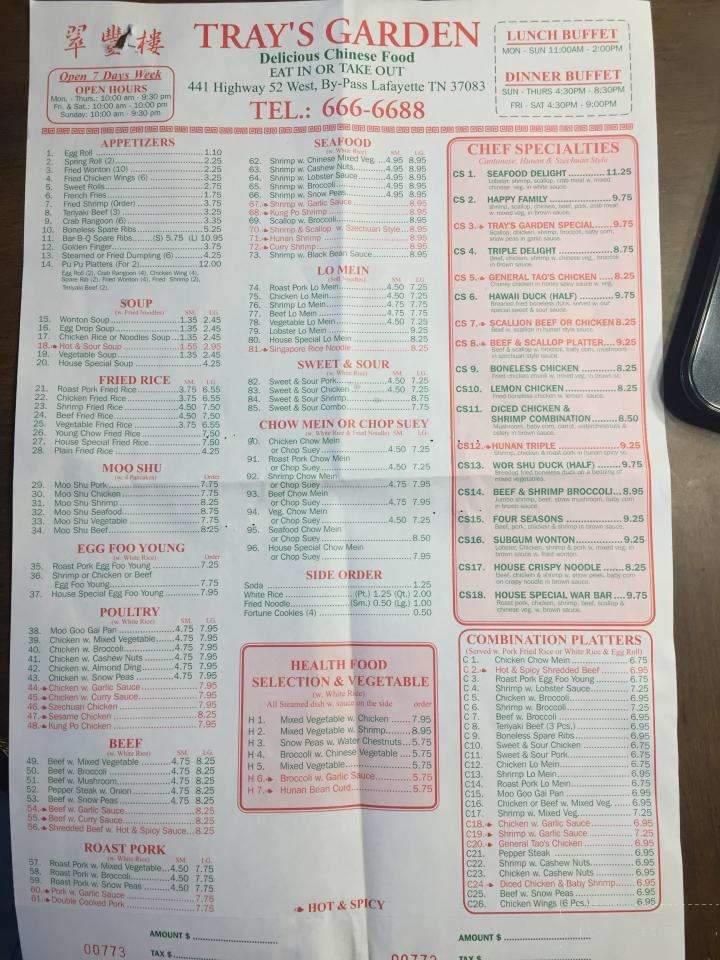 翠豐樓
TRAY'S GARDEN
Delicious Chinese Food
EAT IN OR TAKE OUT
441 Highway 52 West, By-Pass Lafayette TN 37083
TEL.: 666-6688
Open 7 Days Week
OPEN HOURS
Mon. - Thurs.: 10:00 am - 9:30 pm
Fri. & Sat.: 10:00 am - 10:00 pm
Sunday: 10:00 am - 9:30 pm
LUNCH BUFFET
MON - SUN 11:00AM - 2:00PM
DINNER BUFFET
SUN - THURS 4:30PM - 8:30PM
FRI - SAT 4:30PM - 9:00PM
APPETIZERS
1. Egg Roll 1.10
2. Spring Roll (2) 2.25
3. Fried Wonton (10) 2.25
4. Fried Chicken Wings (6) 3.25
5. Sweet Rolls 2.75
6. French Fries 1.75
7. Fried Shrimp (Order) 3.75
8. Teriyaki Beef (3) 3.25
9. Crab Rangoon (6) 3.35
10. Boneless Spare Ribs 5.25
11. Bar-B-Q Spare Ribs (S) 5.75 (L) 10.95
12. Golden Finger 3.75
13. Steamed or Fried Dumpling (6) 4.25
14. Pu Pu Platters (For 2) 12.00
Egg Roll (2), Crab Rangoon (4), Chicken Wing (4),
Spare Rib (2), Fried Wonton (4), Fried Shrimp (2),
Teriyaki Beef (2).
SOUP
(w. Fried Noodles) SM. LG.
15. Wonton Soup 1.35 2.45
16. Egg Drop Soup 1.35 2.45
17. Chicken Rice or Noodles Soup 1.35 2.45
18. Hot & Sour Soup 1.55 2.95
19. Vegetable Soup 1.35 2.45
20. House Special Soup 4.25
FRIED RICE SM. LG.
21. Roast Pork Fried Rice 3.75 6.55
22. Chicken Fried Rice 3.75 6.55
23. Shrimp Fried Rice 4.50 7.50
24. Beef Fried Rice 4.50 7.50
25. Vegetable Fried Rice 3.75 6.55
26. Young Chow Fried Rice 7.50
27. House Special Fried Rice 7.50
28. Plain Fried Rice 4.25
MOO SHU
(w. 4 Pancakes)
29. Moo Shu Pork 7.75
30. Moo Shu Chicken 7.75
31. Moo Shu Shrimp 8.25
32. Moo Shu Seafood 8.75
33. Moo Shu Vegetable 7.75
34. Moo Shu Beef 8.25
EGG FOO YOUNG
(w. White Rice) Order
35. Roast Pork Egg Foo Young 7.25
36. Shrimp or Chicken or Beef
Egg Foo Young 7.75
37. House Special Egg Foo Young 7.95
POULTRY
(w. White Rice) SM. LG.
38. Moo Goo Gai Pan 4.75 7.95
39. Chicken w. Mixed Vegetable 4.75 7.95
40. Chicken w. Broccoli 4.75 7.95
41. Chicken w. Cashew Nuts 4.75 7.95
42. Chicken w. Almond Ding 4.75 7.95
43. Chicken w. Snow Peas 4.75 7.95
44. Chicken w. Garlic Sauce 7.95
45. Chicken w. Curry Sauce 7.95
46. Szechuan Chicken 7.95
47. Sesame Chicken 8.25
48. Kung Po Chicken 7.95
BEEF
(w. White Rice) SM. LG.
49. Beef w. Mixed Vegetable 4.75 8.25
50. Beef w. Broccoli 4.75 8.25
51. Beef w. Mushroom 4.75 8.25
52. Pepper Steak w. Onion 4.75 8.25
53. Beef w. Snow Peas 4.75 8.25
54. Beef w. Garlic Sauce 8.25
55. Beef w. Curry Sauce 8.25
56. Shredded Beef w. Hot & Spicy Sauce 8.25
ROAST PORK
(w. White Rice) SM. LG.
57. Roast Pork w. Mixed Vegetable 4.50 7.75
58. Roast Pork w. Broccoli 4.50 7.75
59. Roast Pork w. Snow Peas 4.50 7.75
60. Pork w. Garlic Sauce 7.75
61. Double Cooked Pork 7.75
SEAFOOD
(w. White Rice) SM. LG.
62. Shrimp w. Chinese Mixed Veg. 4.95 8.95
63. Shrimp w. Cashew Nuts 4.95 8.95
64. Shrimp w. Lobster Sauce 4.95 8.95
65. Shrimp w. Broccoli 4.95 8.95
66. Shrimp w. Snow Peas 4.95 8.95
67. Shrimp w. Garlic Sauce 8.95
68. Kung Po Shrimp 8.95
69. Scallop w. Broccoli 8.95
70. Shrimp & Scallop w. Szechuan Style 8.95
71. Hunan Shrimp 8.95
72. Curry Shrimp 8.95
73. Shrimp w. Black Bean Sauce 8.95
LO MEIN
(Soft Noodles) SM. LG.
74. Roast Pork Lo Mein 4.50 7.25
75. Chicken Lo Mein 4.50 7.25
76. Shrimp Lo Mein 4.75 7.75
77. Beef Lo Mein 4.75 7.75
78. Vegetable Lo Mein 4.50 7.25
79. Lobster Lo Mein 9.25
80. House Special Lo Mein 8.25
81. Singapore Rice Noodle 8.25
SWEET & SOUR
(w. White Rice) SM. LG.
82. Sweet & Sour Pork 4.50 7.25
83. Sweet & Sour Chicken 4.50 7.25
84. Sweet & Sour Shrimp 8.75
85. Sweet & Sour Combo 7.75
CHOW MEIN OR CHOP SUEY
(w. White Rice & Fried Noodle) SM. LG.
90. Chicken Chow Mein
or Chop Suey 4.50 7.25
91. Roast Pork Chow Mein
or Chop Suey 4.50 7.25
92. Shrimp Chow Mein
or Chop Suey 4.75 7.95
93. Beef Chow Mein
or Chop Suey 4.75 7.95
94. Veg. Chow Mein
or Chop Suey 4.50 7.25
95. Seafood Chow Mein
or Chop Suey 8.50
96. House Special Chow Mein
or Chop Suey 7.95
SIDE ORDER
Soda 1.25
White Rice (Pt.) 1.25 (Qt.) 2.00
Fried Noodle (Sm.) 0.50 (Lg.) 1.00
Fortune Cookies (4) 0.50
HEALTH FOOD
SELECTION & VEGETABLE
(w. White Rice)
All Steamed dish w. sauce on the side order
H 1. Mixed Vegetable w. Chicken 7.95
H 2. Mixed Vegetable w. Shrimp 8.95
H 3. Snow Peas w. Water Chestnuts 5.75
H 4. Broccoli w. Chinese Vegetable 5.75
H 5. Mixed Vegetable 5.75
H 6. Broccoli w. Garlic Sauce 5.75
H 7. Hunan Bean Curd 5.75
HOT & SPICY
CHEF SPECIALTIES
Cantonese, Hunan & Szechuan Style
CS 1. SEAFOOD DELIGHT 11.25
Lobster, shrimp, scallop, crab meat w. mixed
chinese veg. in white sauce.
CS 2. HAPPY FAMILY 9.75
Shrimp, scallop, chicken, beef, pork, crab meat
w. mixed veg, in brown sauce.
CS 3. TRAY'S GARDEN SPECIAL 9.75
Scallop, chicken, shrimp, broccoli, baby corn,
snow peas in garlic sauce.
CS 4. TRIPLE DELIGHT 8.75
Beef, chicken, shrimp w. chinese veg., broccoli
in brown sauce.
CS 5. GENERAL TAO'S CHICKEN 8.25
Chunky chicken in honey spicy sauce w. veg.
CS 6. HAWAII DUCK (HALF) 9.75
Breaded fried boneless duck, served w. our
special sweet & sour sauce.
CS 7. SCALLION BEEF OR CHICKEN 8.25
Beef w. scallion in human style sauce.
CS 8. BEEF & SCALLOP PLATTER 9.25
Beef & scallop w. broccoli, baby corn, mushroom
in szechuan style sauce.
CS 9. BONELESS CHICKEN 8.25
Fried chicken chunk w. mixed veg. in brown sc.
CS10. LEMON CHICKEN 8.25
Fried boneless chicken w. lemon sauce.
CS11. DICED CHICKEN &
SHRIMP COMBINATION 8.50
Mushroom, baby corn, carrot, waterchestnuts &
celery in brown sauce.
CS12. HUNAN TRIPLE 9.25
Shrimp, chicken & roast pork in hunan spicy sc.
CS13. WOR SHU DUCK (HALF) 9.75
Breaded fried boneless duck on a bedding of
mixed vegetables.
CS14. BEEF & SHRIMP BROCCOLI 8.95
Jumbo shrimp, beef, straw mushroom, baby corn
in brown sauce.
CS15. FOUR SEASONS 9.25
Beef, pork, chicken & shrimp in brown sauce.
CS16. SUBGUM WONTON 9.25
Lobster, Chicken, shrimp & pork w. mixed veg, in
brown sauce w. fried wonton.
CS17. HOUSE CRISPY NOODLE 8.25
Beef, chicken & shrimp w. snow peas, baby corn
on crispy noodle in brown sauce.
CS18. HOUSE SPECIAL WAR BAR 9.75
Roast pork, chicken, shrimp, beef, scallop &
chinese veg. w. brown sauce.
COMBINATION PLATTERS
(Served w. Pork Fried Rice or White Rice & Egg Roll)
C 1. Chicken Chow Mein 6.75
C 2. Hot & Spicy Shredded Beef 6.95
C 3. Roast Pork Egg Foo Young 6.75
C 4. Shrimp w. Lobster Sauce 7.25
C 5. Chicken w. Broccoli 6.95
C 6. Shrimp w. Broccoli 7.25
C 7. Beef w. Broccoli 6.95
C 8. Teriyaki Beef (3 Pcs.) 6.95
C 9. Boneless Spare Ribs 6.95
C10. Sweet & Sour Chicken 6.95
C11. Sweet & Sour Pork 6.95
C12. Chicken Lo Mein 6.95
C13. Shrimp Lo Mein 6.95
C14. Roast Pork Lo Mein 6.95
C15. Moo Goo Gai Pan 6.95
C16. Chicken or Beef w. Mixed Veg. 6.95
C17. Shrimp w. Mixed Veg. 7.25
C18. Chicken w. Garlic Sauce 6.95
C19. Shrimp w. Garlic Sauce 7.25
C20. General Tao's Chicken 6.95
C21. Pepper Steak 6.95
C22. Shrimp w. Cashew Nuts 6.95
C23. Chicken w. Cashew Nuts 6.95
C24. Diced Chicken & Baby Shrimp 6.95
C25. Beef w. Snow Peas 6.95
C26. Chicken Wings (6 Pcs.) 6.95
AMOUNT $
AMOUNT $
00773
TAX $
00773
TAX $